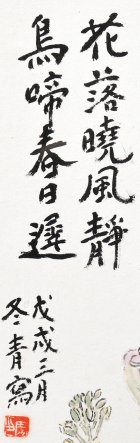 花落曉風靜
鳥啼春日遲
戊戌三月
冬青寫